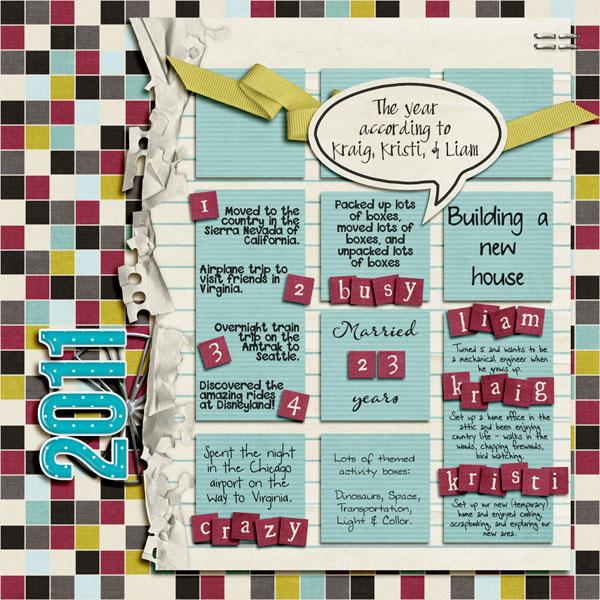 The year
according to
Kraig, Kristi, & Liam
1
Moved to the
country in the
Sierra Nevada of
California.
Airplane trip to
visit friends in
Virginia.
2
Packed up lots
of boxes,
moved lots of
boxes, and
unpacked lots
of boxes
busy
Building a
new
house
3
Overnight train
trip on the
Amtrak to
Seattle.
Discovered the
amazing rides
at Disneyland!
4
Married
23
years
liam
Turned 5 and wants to be
a mechanical engineer when
he grows up.
kraig
Set up a home office in the
attic and been enjoying
country life - walks in the
woods, chopping firewood,
bird watching.
kristi
Set up our new (temporary)
home and enjoyed cooking,
scrapbooking, and exploring our
new area.
Spent the night
in the Chicago
airport on the
way to Virginia.
crazy
Lots of themed
activity boxes:
Dinosaurs, Space,
Transportation,
Light & Collor.
2011